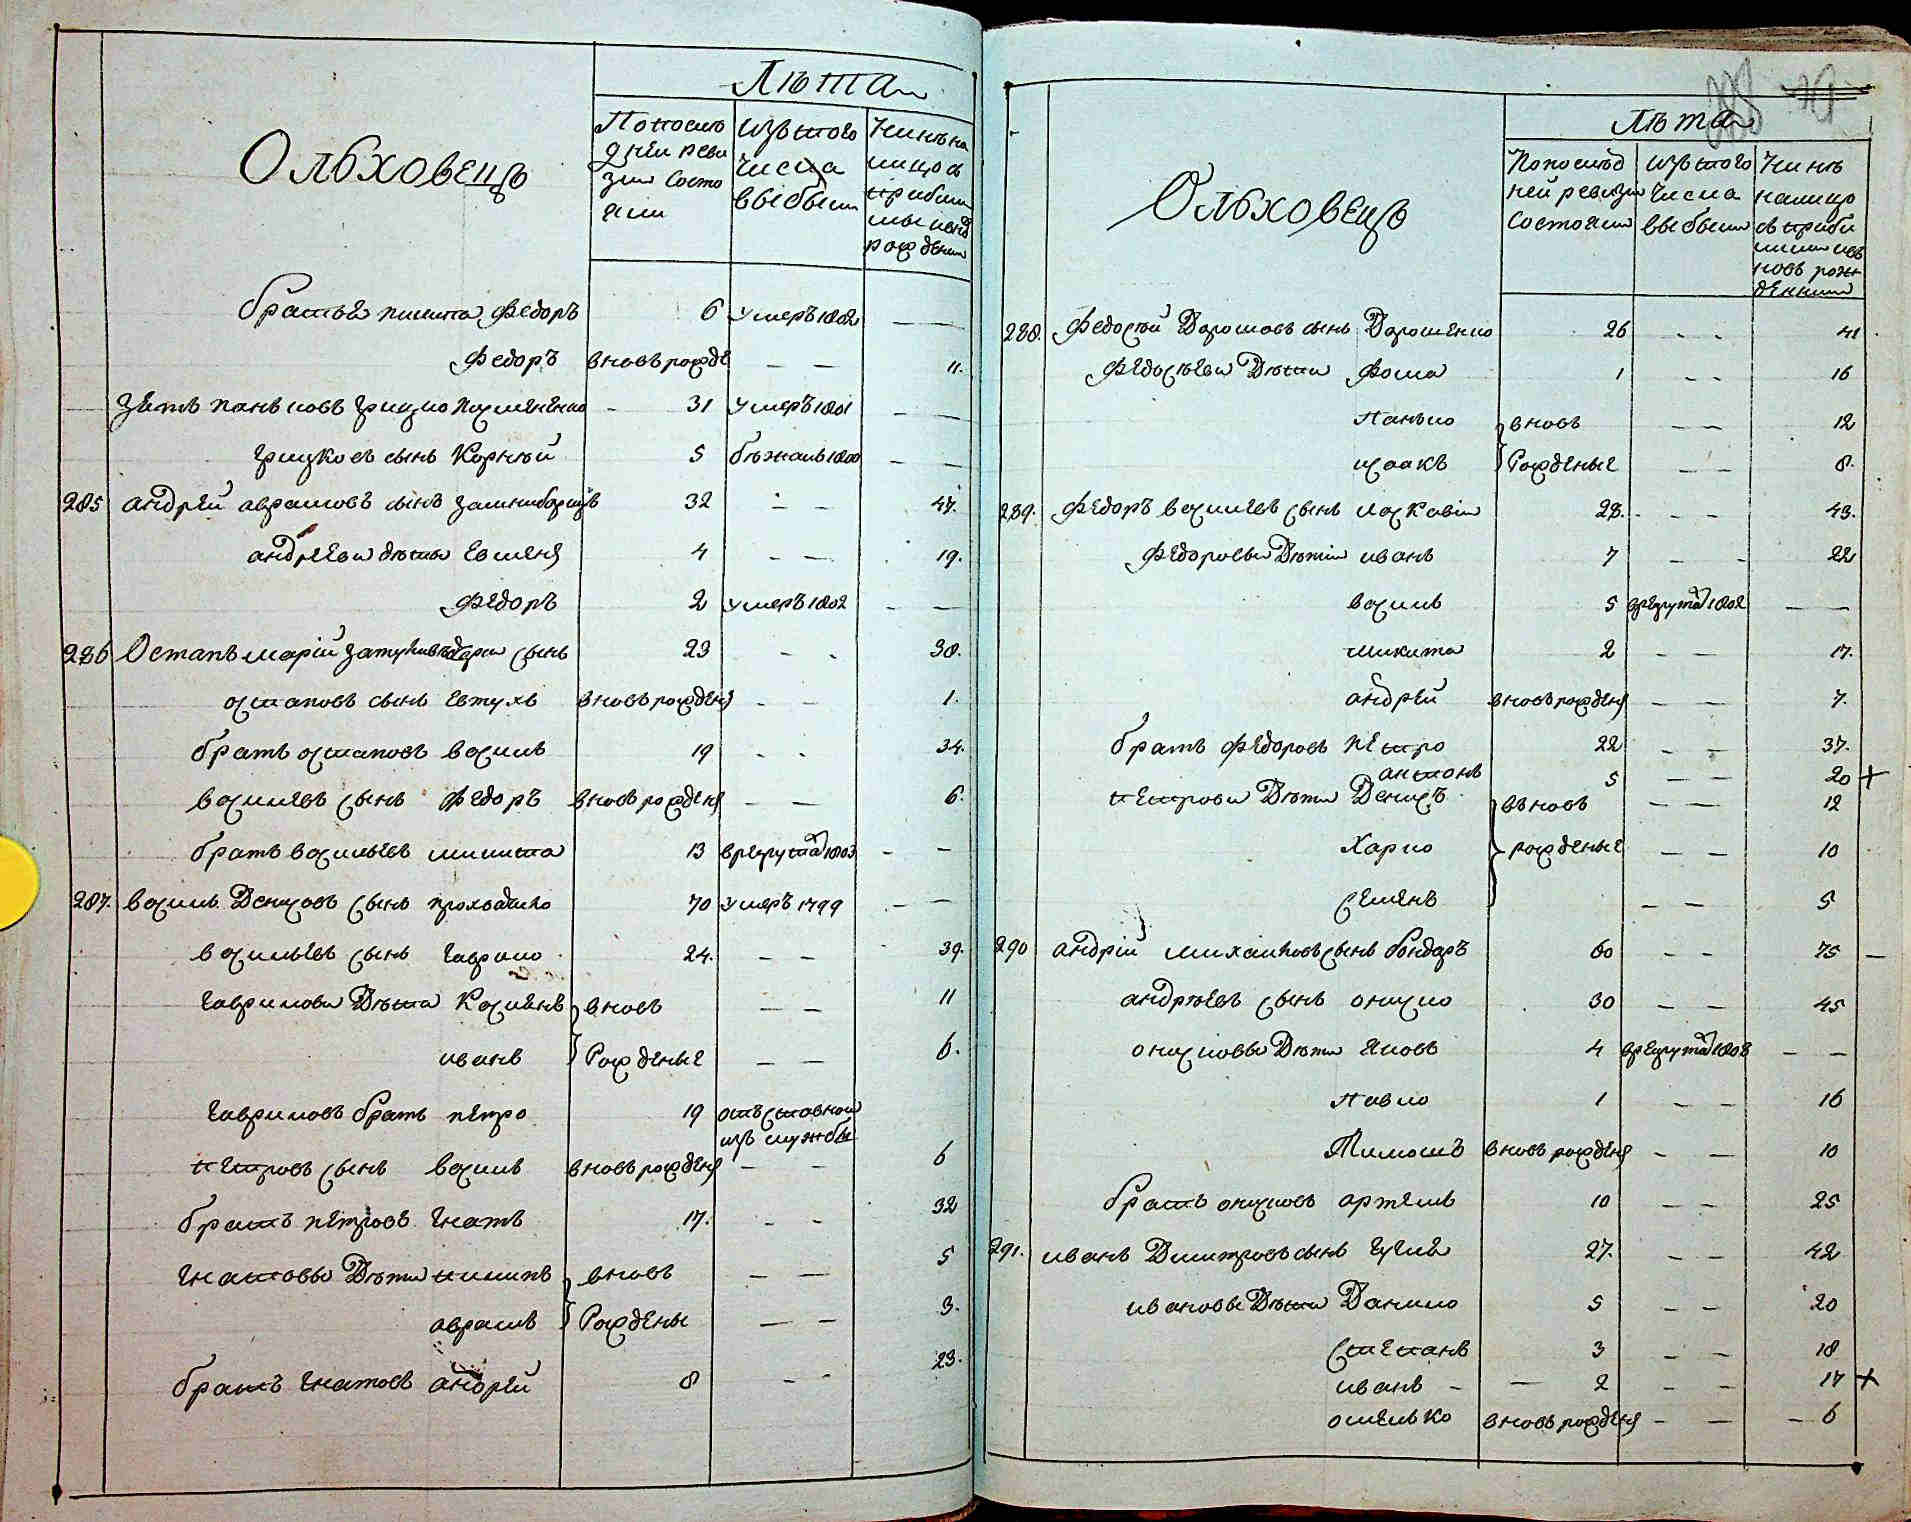 Ольховецъ
Лѣта
По после
дней реви
зии состо
яли
Изъ того
числа
выбыли
Нинѣ на
лицо съ
прибыли
рожденни
братъя Никита Федоръ 6 умеръ 1802 — —
Федоръ вновь рожде — — 11.
зять 31 умеръ 1801 — —
Грицковъ сынъ Корнѣй 5 бѣжалъ 1800 — —
285 Андрей Аврамовъ сынъ 32 — — 47.
Андреевы дѣти Евмен 4 — — 19.
Федоръ 2 умеръ 1802 — —
286 Остапъ сынъ 23 — — 38.
Остаповъ сынъ Евтухъ вновь рожден — — 1.
братъ Остаповъ Василь 19 — — 34.
Василевъ сынъ Федоръ вновь рожден — — 6.
братъ Васильевъ Микита 13 в рекрута 1803 — —
287. Василь Денисовъ сынъ 70 умеръ 1799 — —
Васильевъ сынъ Гаврило 24. — — 39.
Гавриловы Дѣти вновь — — 11
Иванъ Рожденые — — 6.
Гавриловъ братъ Петро 19 отъставной
изъ службы
Петровъ сынъ Василь вновь рожден — — 6
братъ Петровъ Гнатъ 17. — — 32
Гнатовы Дѣти вновь — — 5
Аврамъ Рождены — — 3.
братъ Гнатовъ Андрей 8 — — 23.
Ольховецъ
Лѣта
По послѣд
ней ревизии
состояли
изъ того
числа
выбыли
Нинѣ
налицо
съ прибы
новъ рож
денними
288. Федосѣй Дорошовъ сынъ Дорошенко 26 — — 41
Федосѣевы Дѣти Фома 1 — — 16
Панько вновь — — 12
Исаакъ Рожденые — — 8.
289. Федоръ Василевъ сынъ 28. — — 43.
Федоровы Дѣти Иванъ 7 — — 22
Василь 5 в рекрута 1802 — —
Микита 2 — — 17.
Андрей вновь рожден — — 7.
братъ Федоровъ Петро 22 — — 37.
Антонъ 5 — — 20 +
Петровы Дѣти Денисъ вьновь — — 12
Харко рожденые — — 10
Семенъ — — 5
290 Андрій Михайловъ сынъ бондаръ 60 — — 75 —
Андрѣевъ сынъ Ониско 30 — — 45
Онисковы Дѣти Яковъ 4 в рекрута 1808 — —
Павло 1 — — 16
Тимошъ вновь рожден — — 10
братъ Онисковъ Артемъ 10 — — 25
291. Иванъ Дмитровъ сынъ 27. — — 42
Ивановы Дѣти Данило 5 — — 20
Степанъ 3 — — 18
Иванъ — — 2 — — 17 +
Омелько вновь рожден — — — 6